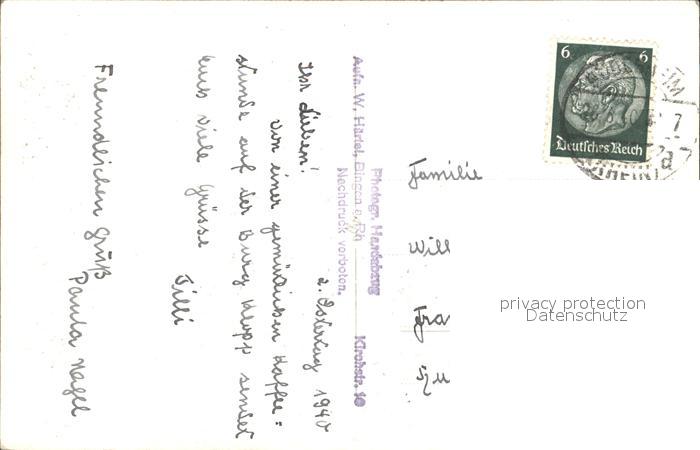 2. Ostertag 1940
Ihr Lieben!
Von einer gemütlichen Kaffee=
stunde auf der Burg Klopp sendet
Euch viele Grüsse
Tilli
Freundlichen Gruß
Paula Nagel
Photogr. Handabzug
Aufn. W. Härtel, Bingen a. Rh. Kirchstr. 10
Nachdruck verboten.
Familie
Will
Fra
6 6
Deutsches Reich
privacy protection
Datenschutz